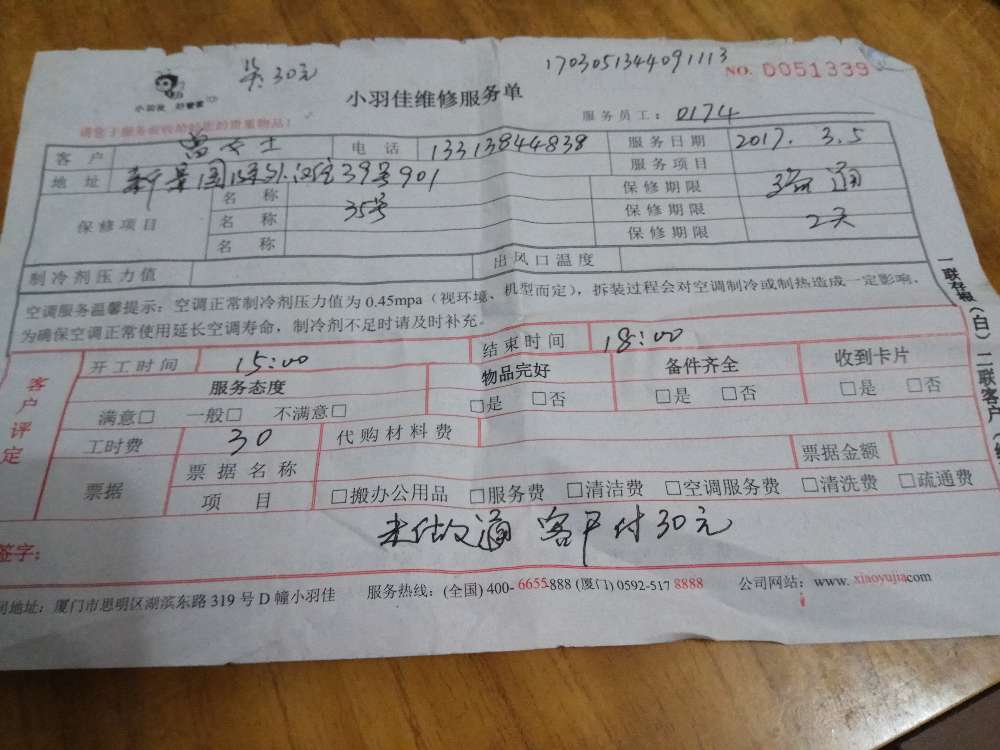 吴30元 1703051344091113
NO. D051339
小羽佳维修服务单
服务员工：0174
请您于服务前收拾好您的贵重物品！
客户 曾女士 电话 13313844838 服务日期 2017.3.5
地址 39号901 服务项目 疏通
保修项目 名称 35号 保修期限 2天
名称 保修期限
名称 保修期限
制冷剂压力值 出风口温度
空调服务温馨提示：空调正常制冷剂压力值为 0.45mpa（视环境、机型而定），拆装过程会对空调制冷或制热造成一定影响，
为确保空调正常使用延长空调寿命，制冷剂不足时请及时补充。
客户评定
开工时间 15:00 结束时间 18:00
服务态度 物品完好 备件齐全 收到卡片
满意□ 一般□ 不满意□ □是 □否 □是 □否 □是 □否
工时费 30 代购材料费
票据 票据名称 票据金额
项目 □搬办公用品 □服务费 □清洁费 □空调服务费 □清洗费 □疏通费
未做通 客户付30元
签字：
地址：厦门市思明区湖滨东路 319 号 D 幢小羽佳 服务热线：(全国) 400-6655-888 (厦门) 0592-517 8888 公司网站：www.xiaoyujia.com
一联存根（白）二联客户（